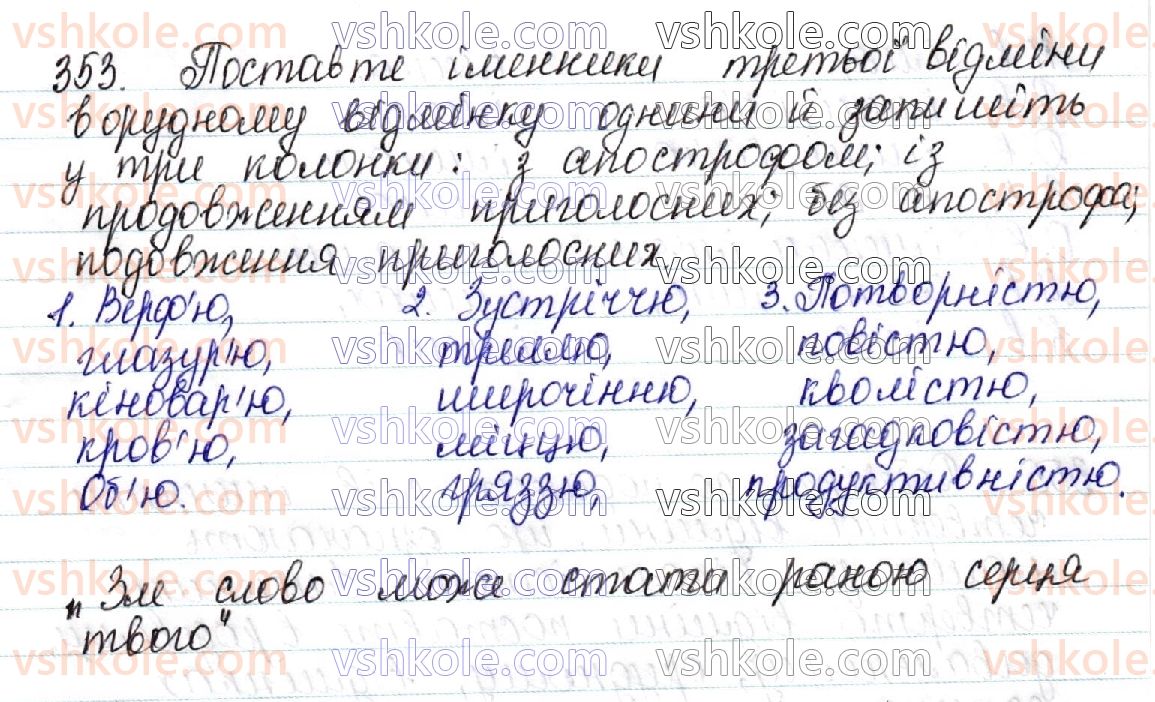 353. Поставте іменники третьої відміни
в орудному відмінку однини й запишіть
у три колонки: з апострофом; із
продовженням приголосних; без апострофа;
подовження приголосних
1. Верф'ю, 2. Зустріччю, 3. Потворністю,
глазур'ю, треллю, повістю,
кіновар'ю, широчінню, кволістю,
кров'ю, міццю, загадковістю,
Об'ю. гряззю, продуктивністю.
"Зле слово може стати раною серця
твого"
vshkole.com